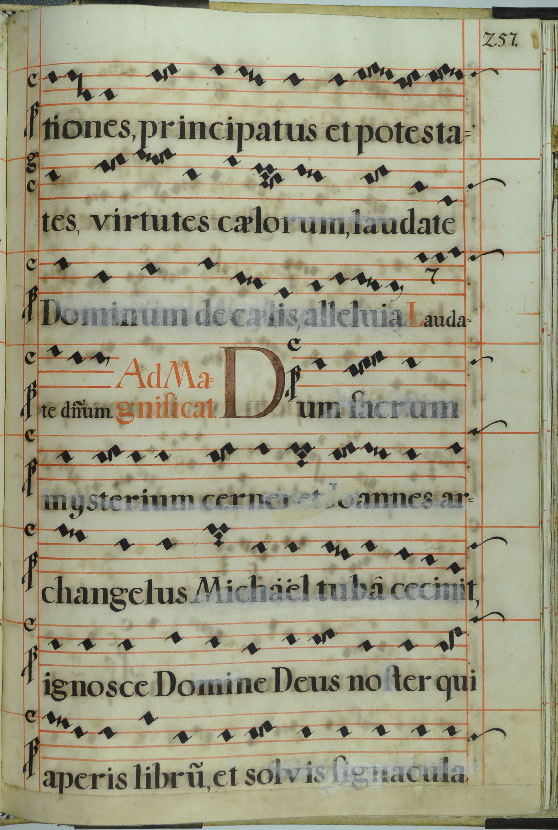 257.
tiones, principatus et potesta-
tes, virtutes cælorum, laudate
Dominum de cælis, alleluia. Lauda-
te dñum. Ad Ma-
gnificat Dum sacrum
mysterium cerneret Joannes ar-
changelus Michäel tubâ cecinit,
ignosce Domine Deus noster qui
aperis librũ, et solvis signacula